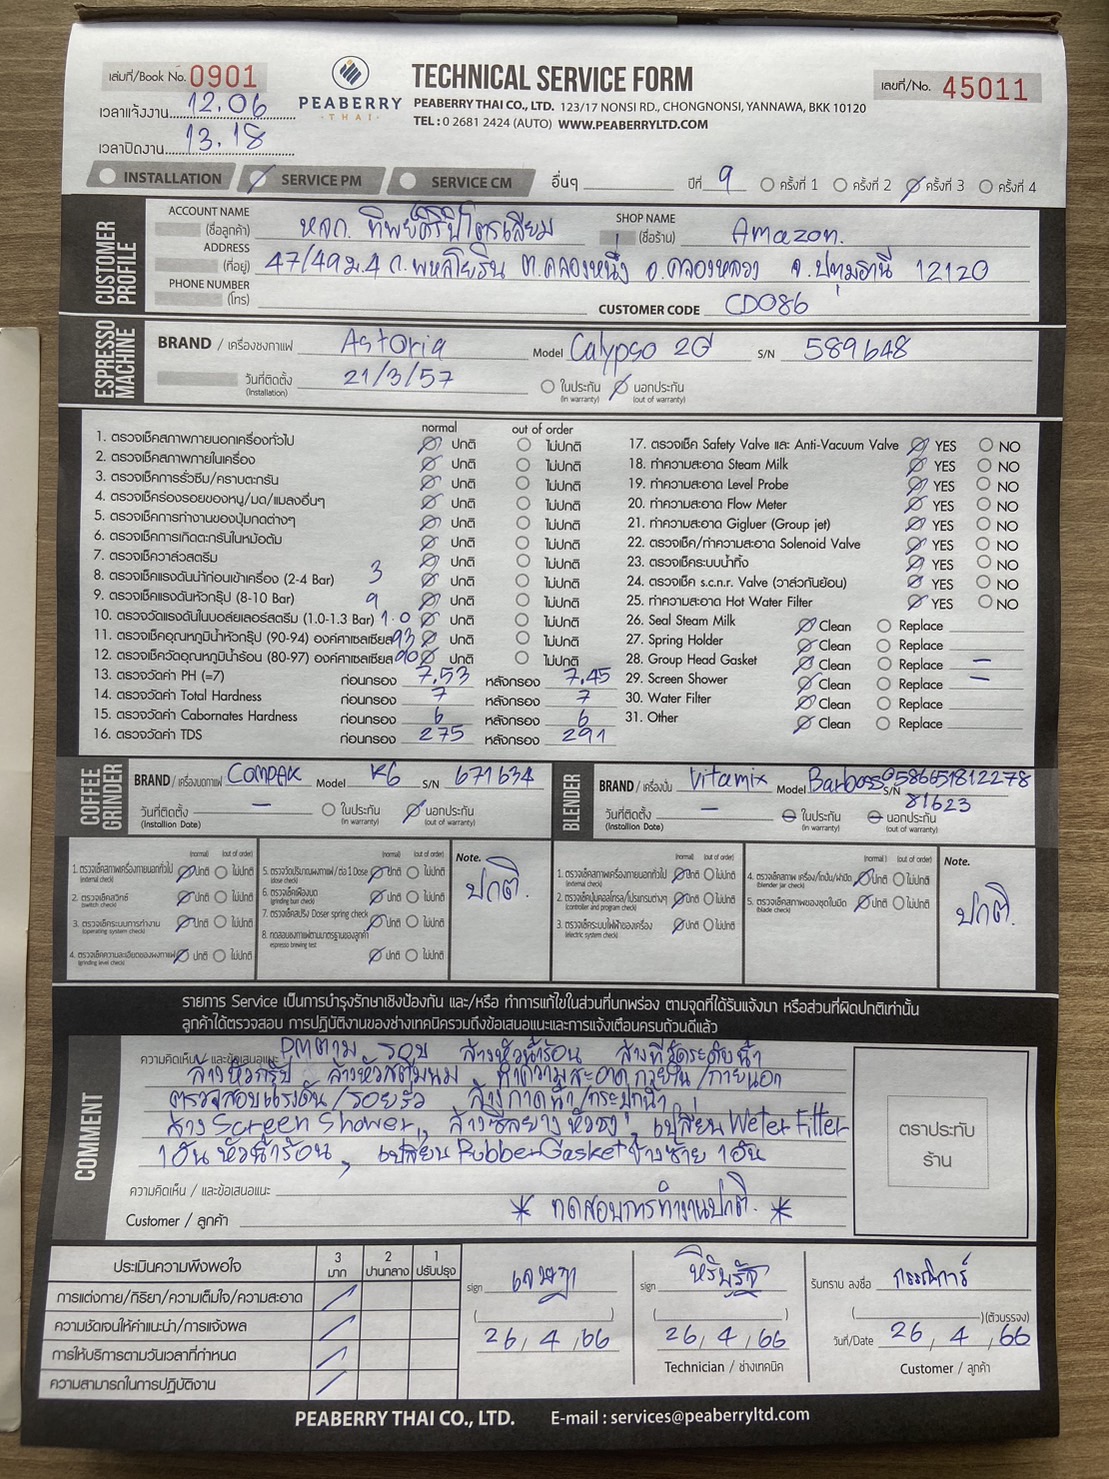 เล่มที่/Book No. 0901
PEABERRY
THAI
TECHNICAL SERVICE FORM
PEABERRY THAI CO., LTD. 123/17 NONSI RD., CHONGNONSI, YANNAWA, BKK 10120
TEL : 0 2681 2424 (AUTO) WWW.PEABERRYLTD.COM
เลขที่/No. 45011
เวลาแจ้งงาน 12.06
เวลาปิดงาน 13.18
INSTALLATION SERVICE PM SERVICE CM อื่นๆ ปีที่ 9 ครั้งที่ 1 ครั้งที่ 2 ครั้งที่ 3 ครั้งที่ 4
CUSTOMER PROFILE
ACCOUNT NAME (ชื่อลูกค้า) หจก. ทิพย์ศิริปิโตรเลียม SHOP NAME (ชื่อร้าน) Amazon.
ADDRESS (ที่อยู่) 47/49 ม.4 ถ.พหลโยธิน ต.คลองหนึ่ง อ.คลองหลวง จ.ปทุมธานี 12120
PHONE NUMBER (โทร) CUSTOMER CODE CD086
ESPRESSO MACHINE
BRAND / เครื่องชงกาแฟ Astoria Model Calypso 2G S/N 589648
วันที่ติดตั้ง (Installation) 21/3/57 ในประกัน (in warranty) นอกประกัน (out of warranty)
normal out of order
1. ตรวจเช็คสภาพภายนอกเครื่องทั่วไป ปกติ ไม่ปกติ
2. ตรวจเช็คสภาพภายในเครื่อง ปกติ ไม่ปกติ
3. ตรวจเช็คการรั่วซึม/คราบตะกรัน ปกติ ไม่ปกติ
4. ตรวจเช็คร่องรอยของหนู/มด/แมลงอื่นๆ ปกติ ไม่ปกติ
5. ตรวจเช็คการทำงานของปุ่มกดต่างๆ ปกติ ไม่ปกติ
6. ตรวจเช็คการเกิดตะกรันในหม้อต้ม ปกติ ไม่ปกติ
7. ตรวจเช็ควาล์วสตรีม ปกติ ไม่ปกติ
8. ตรวจเช็คแรงดันน้ำก่อนเข้าเครื่อง (2-4 Bar) 3 ปกติ ไม่ปกติ
9. ตรวจเช็คแรงดันหัวกรุ๊ป (8-10 Bar) 9 ปกติ ไม่ปกติ
10. ตรวจวัดแรงดันในบอล์ยเลอร์สตรีม (1.0-1.3 Bar) 1.0 ปกติ ไม่ปกติ
11. ตรวจเช็คอุณหภูมิน้ำหัวกรุ๊ป (90-94) องค์ศาเซลเซียส 93 ปกติ ไม่ปกติ
12. ตรวจเช็ควัดอุณหภูมิน้ำร้อน (80-97) องค์ศาเซลเซียส 90 ปกติ ไม่ปกติ
13. ตรวจวัดค่า PH (=7) ก่อนกรอง 7.53 หลังกรอง 7.45
14. ตรวจวัดค่า Total Hardness ก่อนกรอง 7 หลังกรอง 7
15. ตรวจวัดค่า Cabornates Hardness ก่อนกรอง 6 หลังกรอง 6
16. ตรวจวัดค่า TDS ก่อนกรอง 275 หลังกรอง 291
17. ตรวจเช็ค Safety Valve และ Anti-Vacuum Valve YES NO
18. ทำความสะอาด Steam Milk YES NO
19. ทำความสะอาด Level Probe YES NO
20. ทำความสะอาด Flow Meter YES NO
21. ทำความสะอาด Gigluer (Group jet) YES NO
22. ตรวจเช็ค/ทำความสะอาด Solenoid Valve YES NO
23. ตรวจเช็คระบบน้ำทิ้ง YES NO
24. ตรวจเช็ค s.c.n.r. Valve (วาล์วกันย้อน) YES NO
25. ทำความสะอาด Hot Water Filter YES NO
26. Seal Steam Milk Clean Replace
27. Spring Holder Clean Replace
28. Group Head Gasket Clean Replace –
29. Screen Shower Clean Replace –
30. Water Filter Clean Replace
31. Other Clean Replace
COFFEE GRINDER
BRAND / เครื่องบดกาแฟ COMPAK Model K6 S/N 671634
วันที่ติดตั้ง (Installion Date) – ในประกัน (in warranty) นอกประกัน (out of warranty)
BLENDER
BRAND / เครื่องปั่น Vitamix Model Barboss S/N 058665181227881623
วันที่ติดตั้ง (Installion Date) – ในประกัน (in warranty) นอกประกัน (out of warranty)
(normal) (out of order)
1. ตรวจเช็คสภาพเครื่องภายนอกทั่วไป ปกติ ไม่ปกติ
(external check)
2. ตรวจเช็คสวิทซ์ ปกติ ไม่ปกติ
(switch check)
3. ตรวจเช็คระบบการทำงาน ปกติ ไม่ปกติ
(operating system check)
4. ตรวจเช็คความละเอียดของผงกาแฟ ปกติ ไม่ปกติ
(grinding level check)
(normal) (out of order)
5. ตรวจวัดปริมาณผงกาแฟ / ต่อ 1 Dose ปกติ ไม่ปกติ
(dose check)
6. ตรวจเช็คเฟืองบด ปกติ ไม่ปกติ
(grinding burr check)
7. ตรวจเช็คสปริง Doser spring check ปกติ ไม่ปกติ
8. ทดสอบชงกาแฟตามมาตรฐานของลูกค้า ปกติ ไม่ปกติ
espresso brewing test
Note.
ปกติ.
(normal) (out of order)
1. ตรวจเช็คสภาพเครื่องภายนอกทั่วไป ปกติ ไม่ปกติ
(external check)
2. ตรวจเช็คปุ่มคอลโทรล/โปรแกรมต่างๆ ปกติ ไม่ปกติ
(controller and program check)
3. ตรวจเช็คระบบไฟฟ้าของเครื่อง ปกติ ไม่ปกติ
(electric system check)
(normal) (out of order)
4. ตรวจเช็คสภาพ เครื่อง/โถปั่น/ฝาปิด ปกติ ไม่ปกติ
(blender jar check)
5. ตรวจเช็คสภาพของชุดใบมีด ปกติ ไม่ปกติ
(blade check)
Note.
ปกติ.
รายการ Service เป็นการบำรุงรักษาเชิงป้องกัน และ/หรือ ทำการแก้ไขในส่วนที่บกพร่อง ตามจุดที่ได้รับแจ้งมา หรือส่วนที่ผิดปกติเท่านั้น
ลูกค้าได้ตรวจสอบ การปฏิบัติงานของช่างเทคนิครวมถึงข้อเสนอแนะและการแจ้งเตือนครบถ้วนดีแล้ว
COMMENT
ความคิดเห็น / และข้อเสนอแนะ PM ตาม รอบ ล้างหัวน้ำร้อน ล้างที่วัดระดับน้ำ
ล้างหัวกรุ๊ป ล้างหัวสตีมนม ทำความสะอาด ภายใน/ภายนอก
ตรวจสอบแรงดัน/รอยรั่ว ล้างถาดน้ำ/กระปุกน้ำ
ล้าง Screen Shower, ล้างซีลยางหัวชง, เปลี่ยน Weter Filter
1 อัน หัวน้ำร้อน, เปลี่ยน Rubber Gasket ข้างซ้าย 1 อัน
ความคิดเห็น / และข้อเสนอแนะ
* ทดสอบการทำงานปกติ. *
Customer / ลูกค้า
ตราประทับ
ร้าน
ประเมินความพึงพอใจ 3 มาก 2 ปานกลาง 1 ปรับปรุง
การแต่งกาย/กิริยา/ความเต็มใจ/ความสะอาด
ความชัดเจนให้คำแนะนำ/การแจ้งผล
การให้บริการตามวันเวลาที่กำหนด
ความสามารถในการปฏิบัติงาน
sign
26 / 4 / 66
sign หิรัญรัจ
26 / 4 / 66
Technician / ช่างเทคนิค
รับทราบ ลงชื่อ กรรณิการ์
(ตัวบรรจง)
วันที่/Date 26 / 4 / 66
Customer / ลูกค้า
PEABERRY THAI CO., LTD. E-mail : services@peaberryltd.com